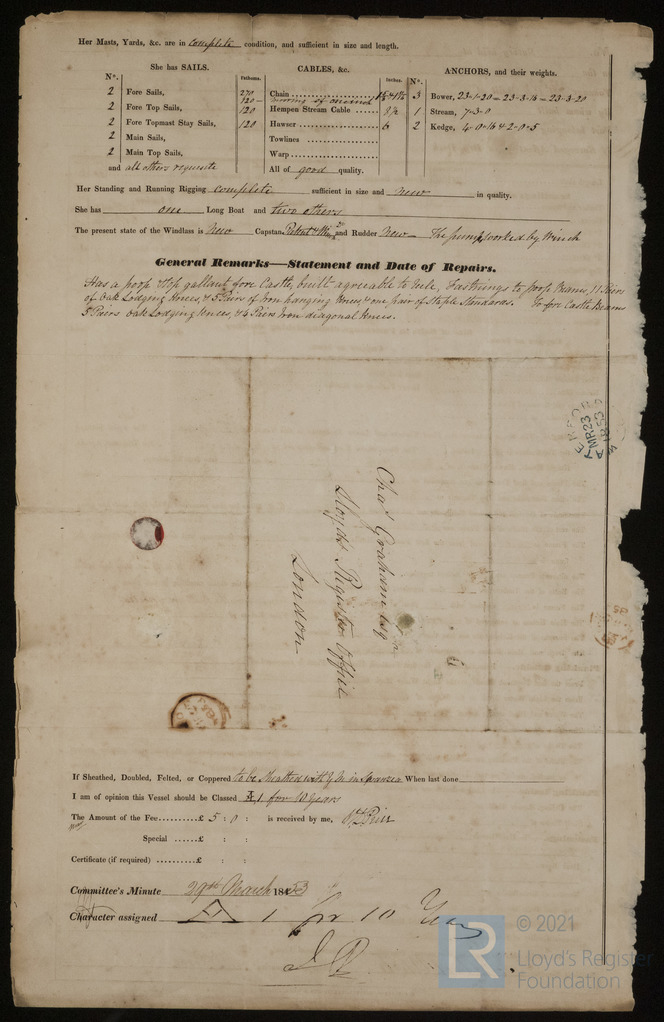 Her Masts, Yards, &c. are in complete condition, and sufficient in size and length.
She has SAILS.
N°.
2 Fore Sails,
2 Fore Top Sails,
2 Fore Topmast Stay Sails,
2 Main Sails,
2 Main Top Sails,
and all others requisite
CABLES, &c.
Fathoms. Inches.
270 Chain
120 — of one inch
120 Hempen Stream Cable 8½
120 Hawser 6
Towlines
Warp
All of good quality.
ANCHORS, and their weights.
N°.
3 Bower, 23-1-20 – 23-3-16 – 23-3-20
1 Stream, 7-3-0
2 Kedge, 4-0-16 & 2-0-5
Her Standing and Running Rigging complete sufficient in size and new in quality.
She has one Long Boat and two others
The present state of the Windlass is New Capstan Patent and Rudder New — The pump worked by Winch
General Remarks—Statement and Date of Repairs.
Has a poop & top gallant fore Castle, built agreeable to rule, Fastnings to poop Beams, 11 Pairs
of Oak Lodging Knees, & 5 Pairs of Iron hanging Knees, & one pair of Staple Standards. To fore Castle Beams
5 Pairs Oak Lodging Knees, & 4 Pairs Iron diagonal Knees.
Chas Graham Esq
Lloyds Register Office
London
MR 23
1853
If Sheathed, Doubled, Felted, or Coppered to be Sheathed with Y M in Swansea When last done
I am of opinion this Vessel should be Classed A 1 for 10 Years
The Amount of the Fee £ 5 : 0 : is received by me,
Special £ : :
Certificate (if required) £ : :
Committee's Minute 29th March 1853
Character assigned A 1 for 10 Years
LR © 2021
Lloyd's Register
Foundation